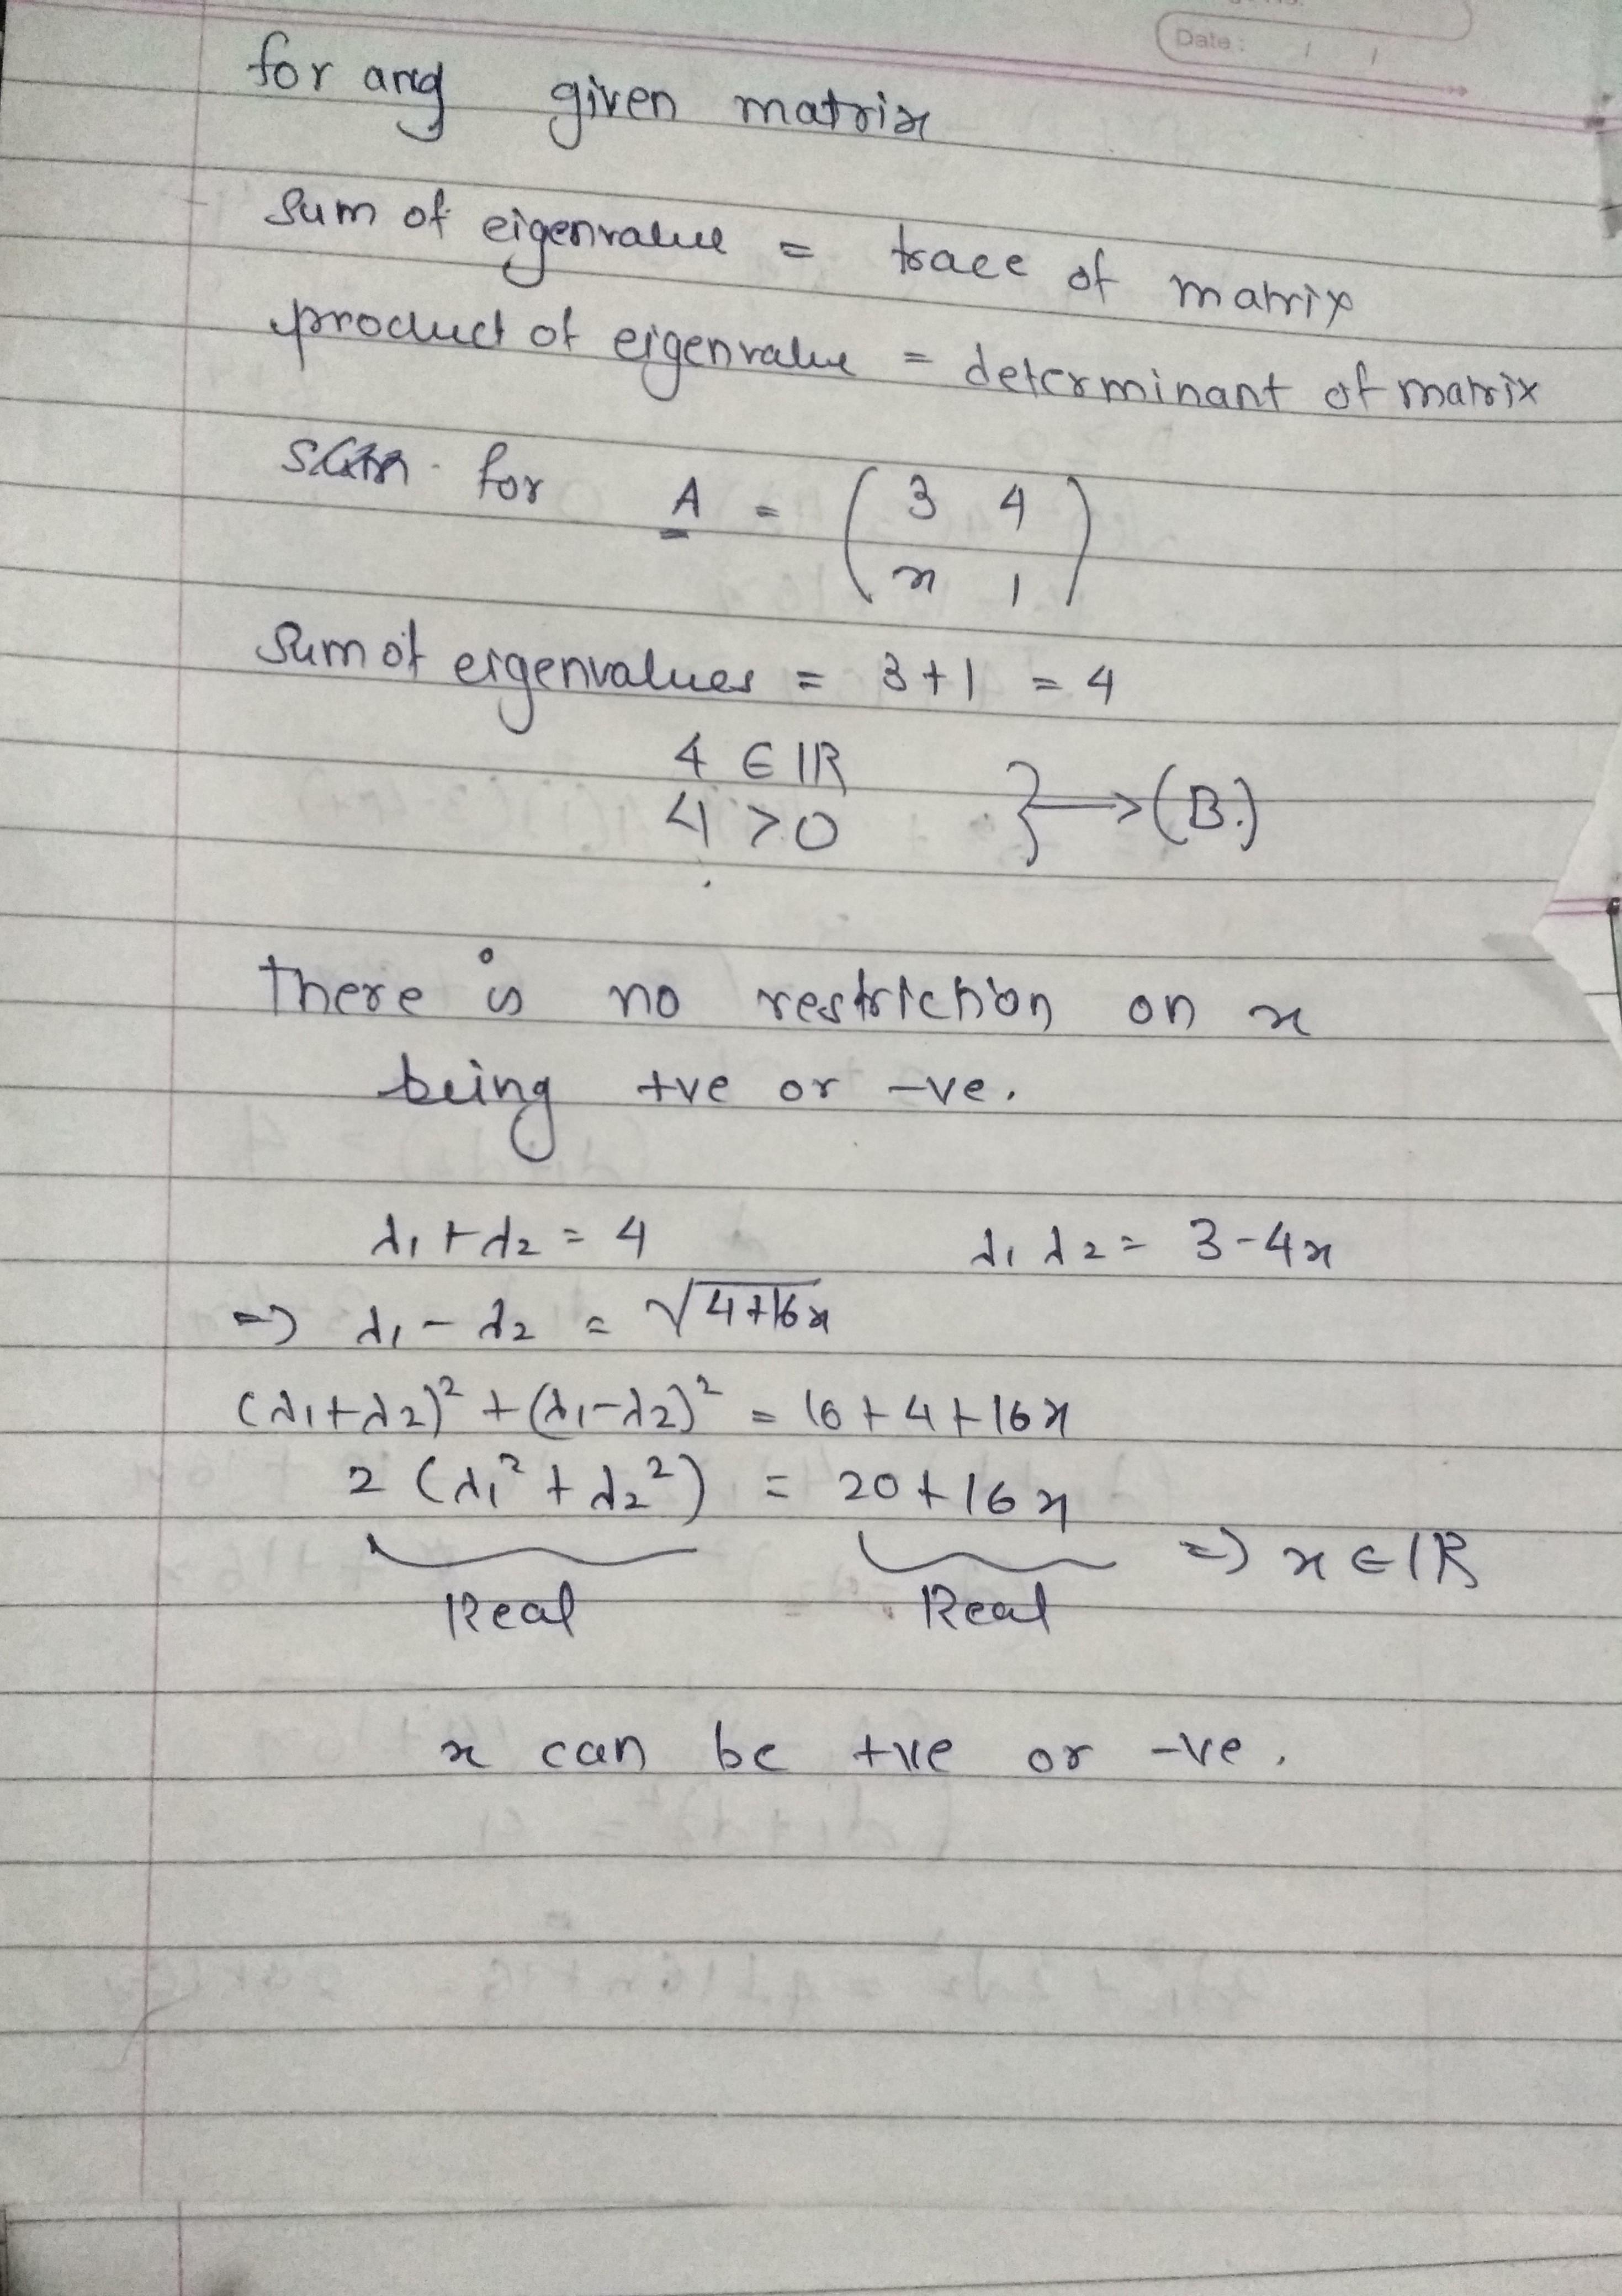 Date: / /
for any given matrix
Sum of eigenvalue = trace of matrix
product of eigenvalue = determinant of matrix
for A = ( 3 4
x 1 )
Sum of eigenvalues = 3+1 = 4
4 ∈ IR
4 > 0 } → (B.)
There is no restriction on x
being +ve or -ve.
λ₁ + λ₂ = 4 λ₁ λ₂ = 3-4x
=> λ₁ - λ₂ = √4+16x
(λ₁+λ₂)² + (λ₁-λ₂)² = 16 + 4 + 16x
2 (λ₁² + λ₂²) = 20 + 16x
=> x ∈ IR
Real Real
x can be +ve or -ve.